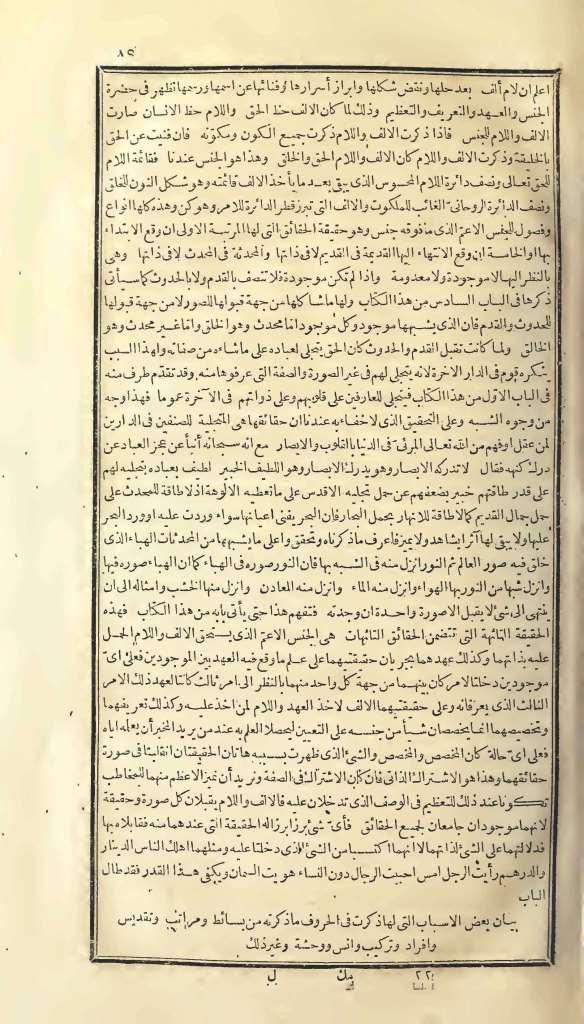 ٨٥
اعلم ان لام ألف بعد حلها ونقض شكلها وابراز أسرارها وفنائها عن اسمها ورسمها تظهر فى حضرة
الجنس والعهد والتعريف والتعظيم وذلك لما كان الالف حظ الحق واللام حظ الانسان صارت
الالف واللام للجنس فاذا ذكرت الالف واللام ذكرت جميع الكون ومكونه فان فنيت عن الحق
بالخليقة وذكرت الالف واللام كان الالف واللام الحق والخلق وهذا هو الجنس عندنا فقائمة اللام
للحق تعالى ونصف دائرة اللام المحسوس الذى يبقى بعد ما يأخذ الالف قائمته وهو شكل النون للخلق
ونصف الدائرة الروحانى الغائب للملكوت والالف التى تبرز قطر الدائرة للامر وهو كن وهذه كلها أنواع
وفصول للجنس الاعم الذى ما فوقه جنس وهو حقيقة الحقائق التى لها المرتبة الاولى ان وقع الابتداء
بها والخامسة ان وقع الانتهاء اليها القديمة فى القديم لا فى ذاتها والمحدثة فى المحدث لا فى ذاتها وهى
بالنظر اليها لا موجودة ولا معدومة واذا لم تكن موجودة فلا تتصف بالقدم ولا بالحدوث كما سيأتى
ذكرها فى الباب السادس من هذا الكتاب ولها ما شاكلها من جهة قبولها للصور لا من جهة قبولها
للحدوث والقدم فان الذى يشبهها موجود وكل موجود اما محدث وهو الخلق واما غير محدث وهو
الخالق ولما كانت تقبل القدم والحدوث كان الحق يتجلى لعباده على ما شاءه من صفاته ولهذا السبب
ينكره قوم فى الدار الآخرة لانه يتجلى لهم فى غير الصورة والصفة التى عرفوها منه وقد تقدم طرف منه
فى الباب الاول من هذا الكتاب فيتجلى للعارفين على قلوبهم وعلى ذواتهم فى الآخرة عموما فهذا وجه
من وجوه الشبه وعلى التحقيق الذى لا خفاء به عندنا ان حقائقها هى المتجلية للصنفين فى الدارين
لمن عقل أو فهم من الله تعالى المرئى فى الدنيا بالقلوب والابصار مع انه سبحانه أنبأ عن عجز العباد عن
درك كنهه فقال لا تدركه الابصار وهو يدرك الابصار وهو اللطيف الخبير لطيف بعباده بتجليه لهم
على قدر طاقتهم خبير بضعفهم عن حمل تجليه الاقدس على ما تعطيه الالوهة اذ لا طاقة للمحدث على
حمل جمال القديم كما لا طاقة للانهار بحمل البحار فان البحر يفنى أعيانها سواء وردت عليه أو ورد البحر
عليها ولا يبقى لها أثر ايشاهد ولا يميز فاعرف ما ذكرناه وتحقق وأعلى ما يشبهها من المحدثات الهباء الذى
خلق فيه صور العالم ثم النور انزل منه فى الشبه بها فان النور صورة فى الهباء كما ان الهباء صورة فيها
وأنزل شبها من النور بها الهواء وأنزل منه الماء وأنزل منه المعادن وأنزل منها الخشب وأمثاله الى ان
ينتهى الى شئ لا يقبل الا صورة واحدة ان وجدته فتفهم هذا حتى يأتى بابه من هذا الكتاب فهذه
الحقيقة التائهة التى تتضمن الحقائق التائهات هى الجنس الاعم الذى يستحق الالف واللام الحمل
عليه بذاتهما وكذلك عهدهما يجريان حقيقتيهما على علم ما وقع فيه العهد بين الموجودين فعلى أى
موجودين دخلتا لامر كان بينهما من جهة كل واحد منهما بالنظر الى أمر ثالث كانتا لعهد ذلك الامر
الثالث الذى يعرفانه وعلى حقيقتيهما الالف لاخذ العهد واللام لمن أخذ عليه وكذلك تعريفهما
وتخصيصهما انما يخصصان شيأ من جنسه على التعيين ليحصل العلم به عند من يريد المخبر أن يعلمه اياه
فعلى أى حالة كان المخصص والمخصص والشئ الذى ظهرت بسببه هاتان الحقيقتان انقلبتا فى صورة
حقائقهما وهذا هو الاشتراك الذاتى فان كان الاشتراك فى الصفة ونريد أن نميز الاعظم منهما للمخاطب
تكونا عند ذلك للتعظيم فى الوصف الذى تدخلان عليه فالالف واللام يقبلان كل صورة وحقيقة
لانهما موجودان جامعان لجميع الحقائق فأى شئ برز أبرزا له الحقيقة التى عندهما منه فقابلاه بها
فدلالتهما على الشئ لذاتهما لا انهما اكتسبا من الشئ الذى دخلتا عليه ومثلهما أهلك الناس الدينار
والدرهم رأيت الرجل أمس احببت الرجال دون النساء هويت السمان ويكفى هذا القدر فقد طال
الباب
بيان بعض الاسباب التى لها ذكرت فى الحروف ما ذكرته من بسائط ومراتب وتقديس
وافراد وتركيب وانس ووحشة وغير ذلك
٢٢ مك ل